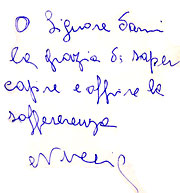 O Signore Dami
la grazia di saper
capire e offrire la
sofferenza